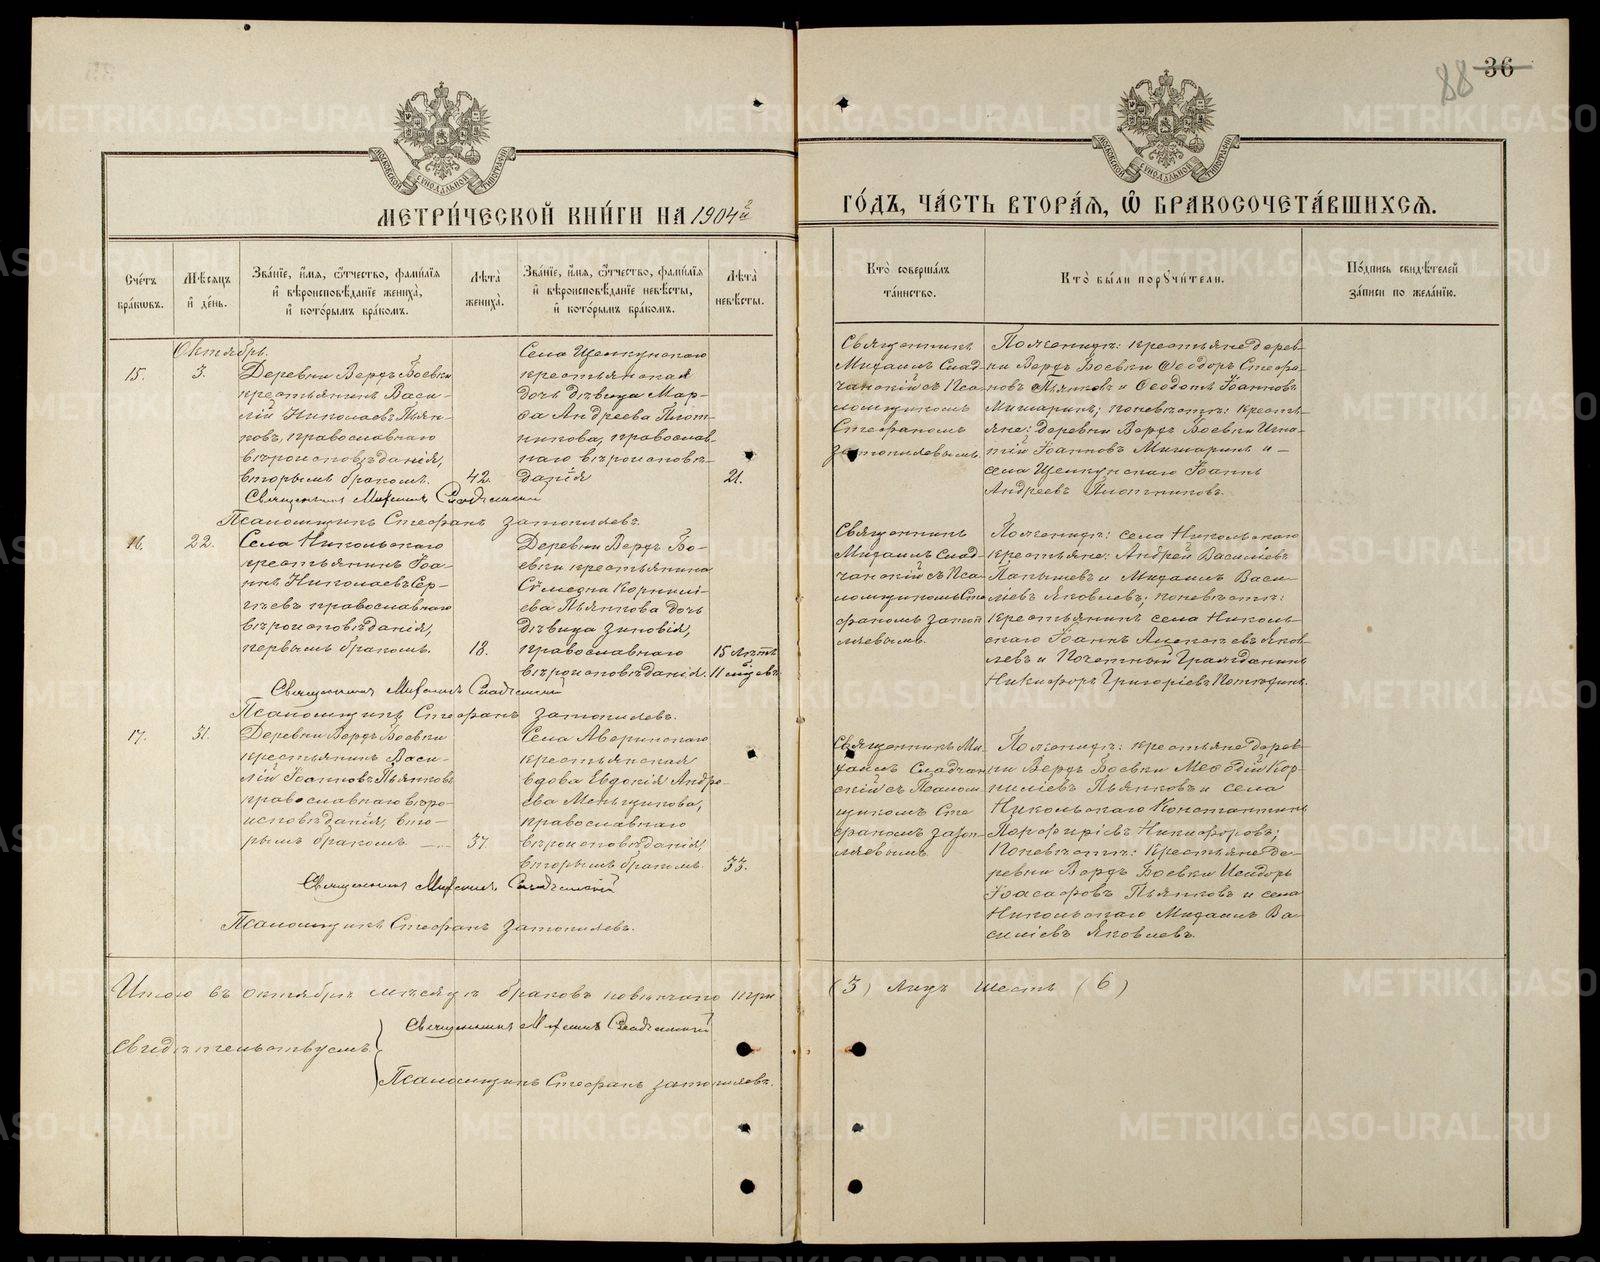 88 36
МЕТРИ́ЧЕСКОЙ КНИ́ГИ НА 1904й
ГО́ДЪ, ЧА́СТЬ ВТОРА́Я, Ѡ БРАКОСОЧЕТА́ВШИХСЯ.
Сче́тъ
бра́ковъ.
Мѣ́сяцъ
и де́нь.
Зва́нїе, и́мя, ѻ́тчество, фами́лїя
и вѣроисповѣ́данїе жениха̀,
и кото́рымъ бра́комъ.
Лѣта̀
жениха̀.
Зва́нїе, и́мя, ѻ́тчество, фами́лїя
и вѣроисповѣ́данїе невѣ́сты,
и кото́рымъ бра́комъ.
Лѣта̀
невѣ́сты.
Кто̀ соверша́лъ
та́инство.
Кто̀ бы́ли порꙋчи́тели.
По́дпись свидѣ́телей
за́писи по жела́нїю.
Октябрь.
15.
3.
Деревни Верхъ Боевки
крестьянинъ Васи-
лій Николаевъ Пьян-
ковъ, православнаго
вѣроисповѣданія,
вторымъ бракомъ.
42.
Села Щелкунскаго
крестьянская
дочь дѣвица Мар-
ѳа Андреева Плот-
никова, православ-
наго вѣроисповѣ-
данія
21.
Священникъ
Михаилъ Слад-
чанскій съ Пса-
ломщикомъ
Стефаномъ
Затопляевымъ.
По женихѣ: крестьяне дерев-
ни Верхъ Боевки Ѳеодоръ Стефа-
новъ Пьянковъ и Ѳеодотъ Іоанновъ
Мишаринъ; по невѣстѣ: кресть-
яне: деревни Верхъ Боевки Игна-
тій Іоанновъ Мишаринъ и
села Щелкунскаго Іоаннъ
Андреевъ Плотниковъ.
Священникъ Михаилъ
Псаломщикъ Стефанъ Затопляевъ.
16.
22.
Села Никольскаго
крестьянинъ Іоа-
ннъ Николаевъ Сер-
гѣевъ православнаго
вѣроисповѣданія,
первымъ бракомъ.
18.
Деревни Верхъ Бо-
евки крестьянина
Сѵмеона Корнилі-
ева Пьянкова дочь
дѣвица Зиновія,
православнаго
вѣроисповѣданія.
15 лѣтъ
11 мцевъ
Священникъ
Михаилъ Слад-
чанскій съ Пса-
ломщикомъ Сте
фаномъ Затоп
ляевымъ.
По женихѣ: села Никольскаго
крестьяне: Андрей Василіевъ
Папышевъ и Михаилъ Васи-
ліевъ Яковлевъ; по невѣстѣ:
крестьянинъ села Николь-
скаго Іоаннъ Яков-
левъ и Почетный Гражданинъ
Никифоръ Григоріевъ
Священникъ Михаилъ
Псаломщикъ Стефанъ Затопляевъ.
17.
31.
Деревни Верхъ Боевки
крестьянинъ Васи-
лій Іоанновъ Пьянковъ
православнаго вѣро-
исповѣданія, вто-
рымъ бракомъ
37.
Села Аверинскаго
крестьянская
вдова Евдокія Андре-
ева Меньщикова,
православнаго
вѣроисповѣданія,
вторымъ бракомъ.
33.
Священникъ Ми-
хаилъ Сладчан
скій съ Псалом
щикомъ Сте
фаномъ Затоп
ляевымъ
По женихѣ: крестьяне дерев-
ни Верхъ Боевки Меѳодій Кор-
ниліевъ Пьянковъ и села
Никольскаго Константинъ
Порфиріевъ Никифоровъ;
По невѣстѣ: Крестьяне де-
ревни Верхъ Боевки Исидоръ
Іоасафовъ Пьянковъ и села
Никольскаго Михаилъ Ва-
силіевъ Яковлевъ.
Священникъ Михаилъ
Псаломщикъ Стефанъ Затопляевъ.
Итого въ октябрѣ мѣсяцѣ браковъ повѣнчано три (3) лицъ шесть (6)
Свидѣтельствуемъ
Священникъ Михаилъ
Псаломщикъ Стефанъ Затопляевъ.
METRIKI.GASO-URAL.RU